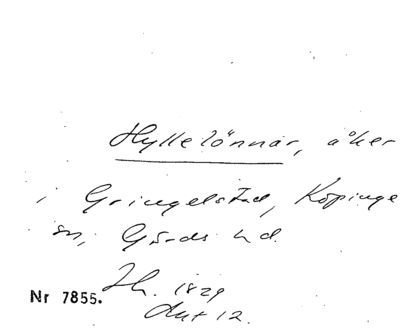 Hyllelönnar, åker
i Gringelstad, Köpinge
sn, Gärds hd.
Lh. 1829
Akt 12.
Nr 7855.